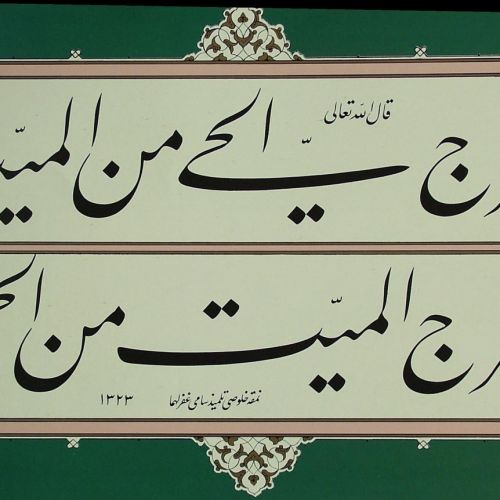 قال الله تعالى
رج الحيّ من الميّـ
رج الميّت من الحـ
نمقه خلوصي تلميذ سامي غفر لهما ١٣٢٣